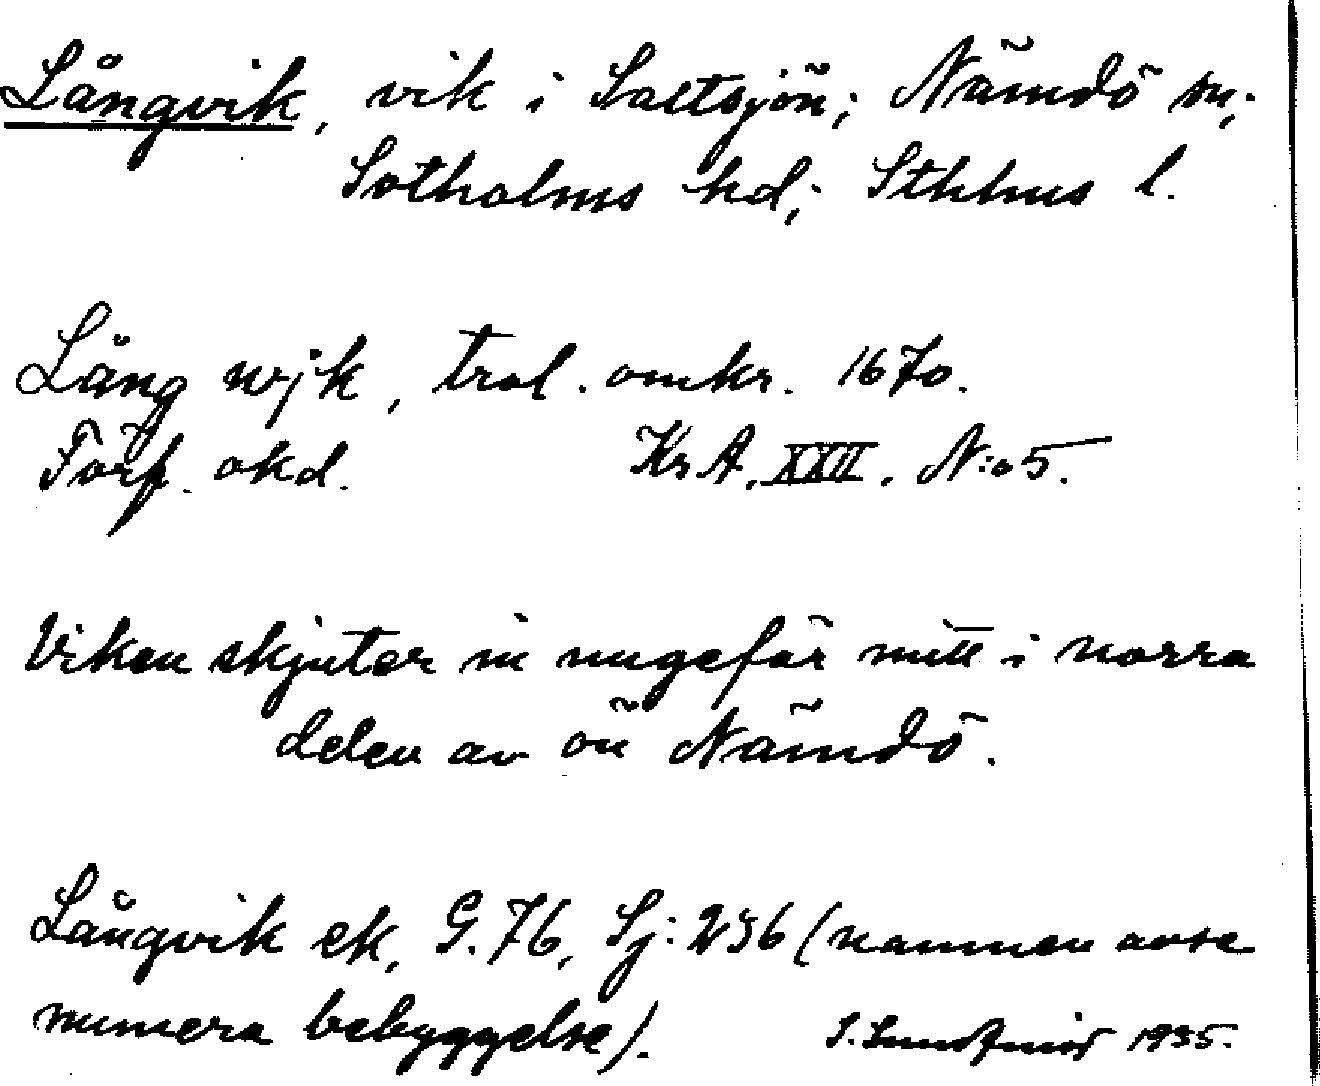 Långvik, vik i Saltsjön; Nämdö sn;
Sotholms hd; Sthlms l.
Lång wjk, trol. omkr. 1670.
Förf. okd. Kr.A. XXII. N:o 5.
Viken skjuter in ungefär mitt i norra
delen av ön Nämdö.
Långvik ek, G. 76, Sj: 236 (namnen avse
numera bebyggelse).
S. 1935.